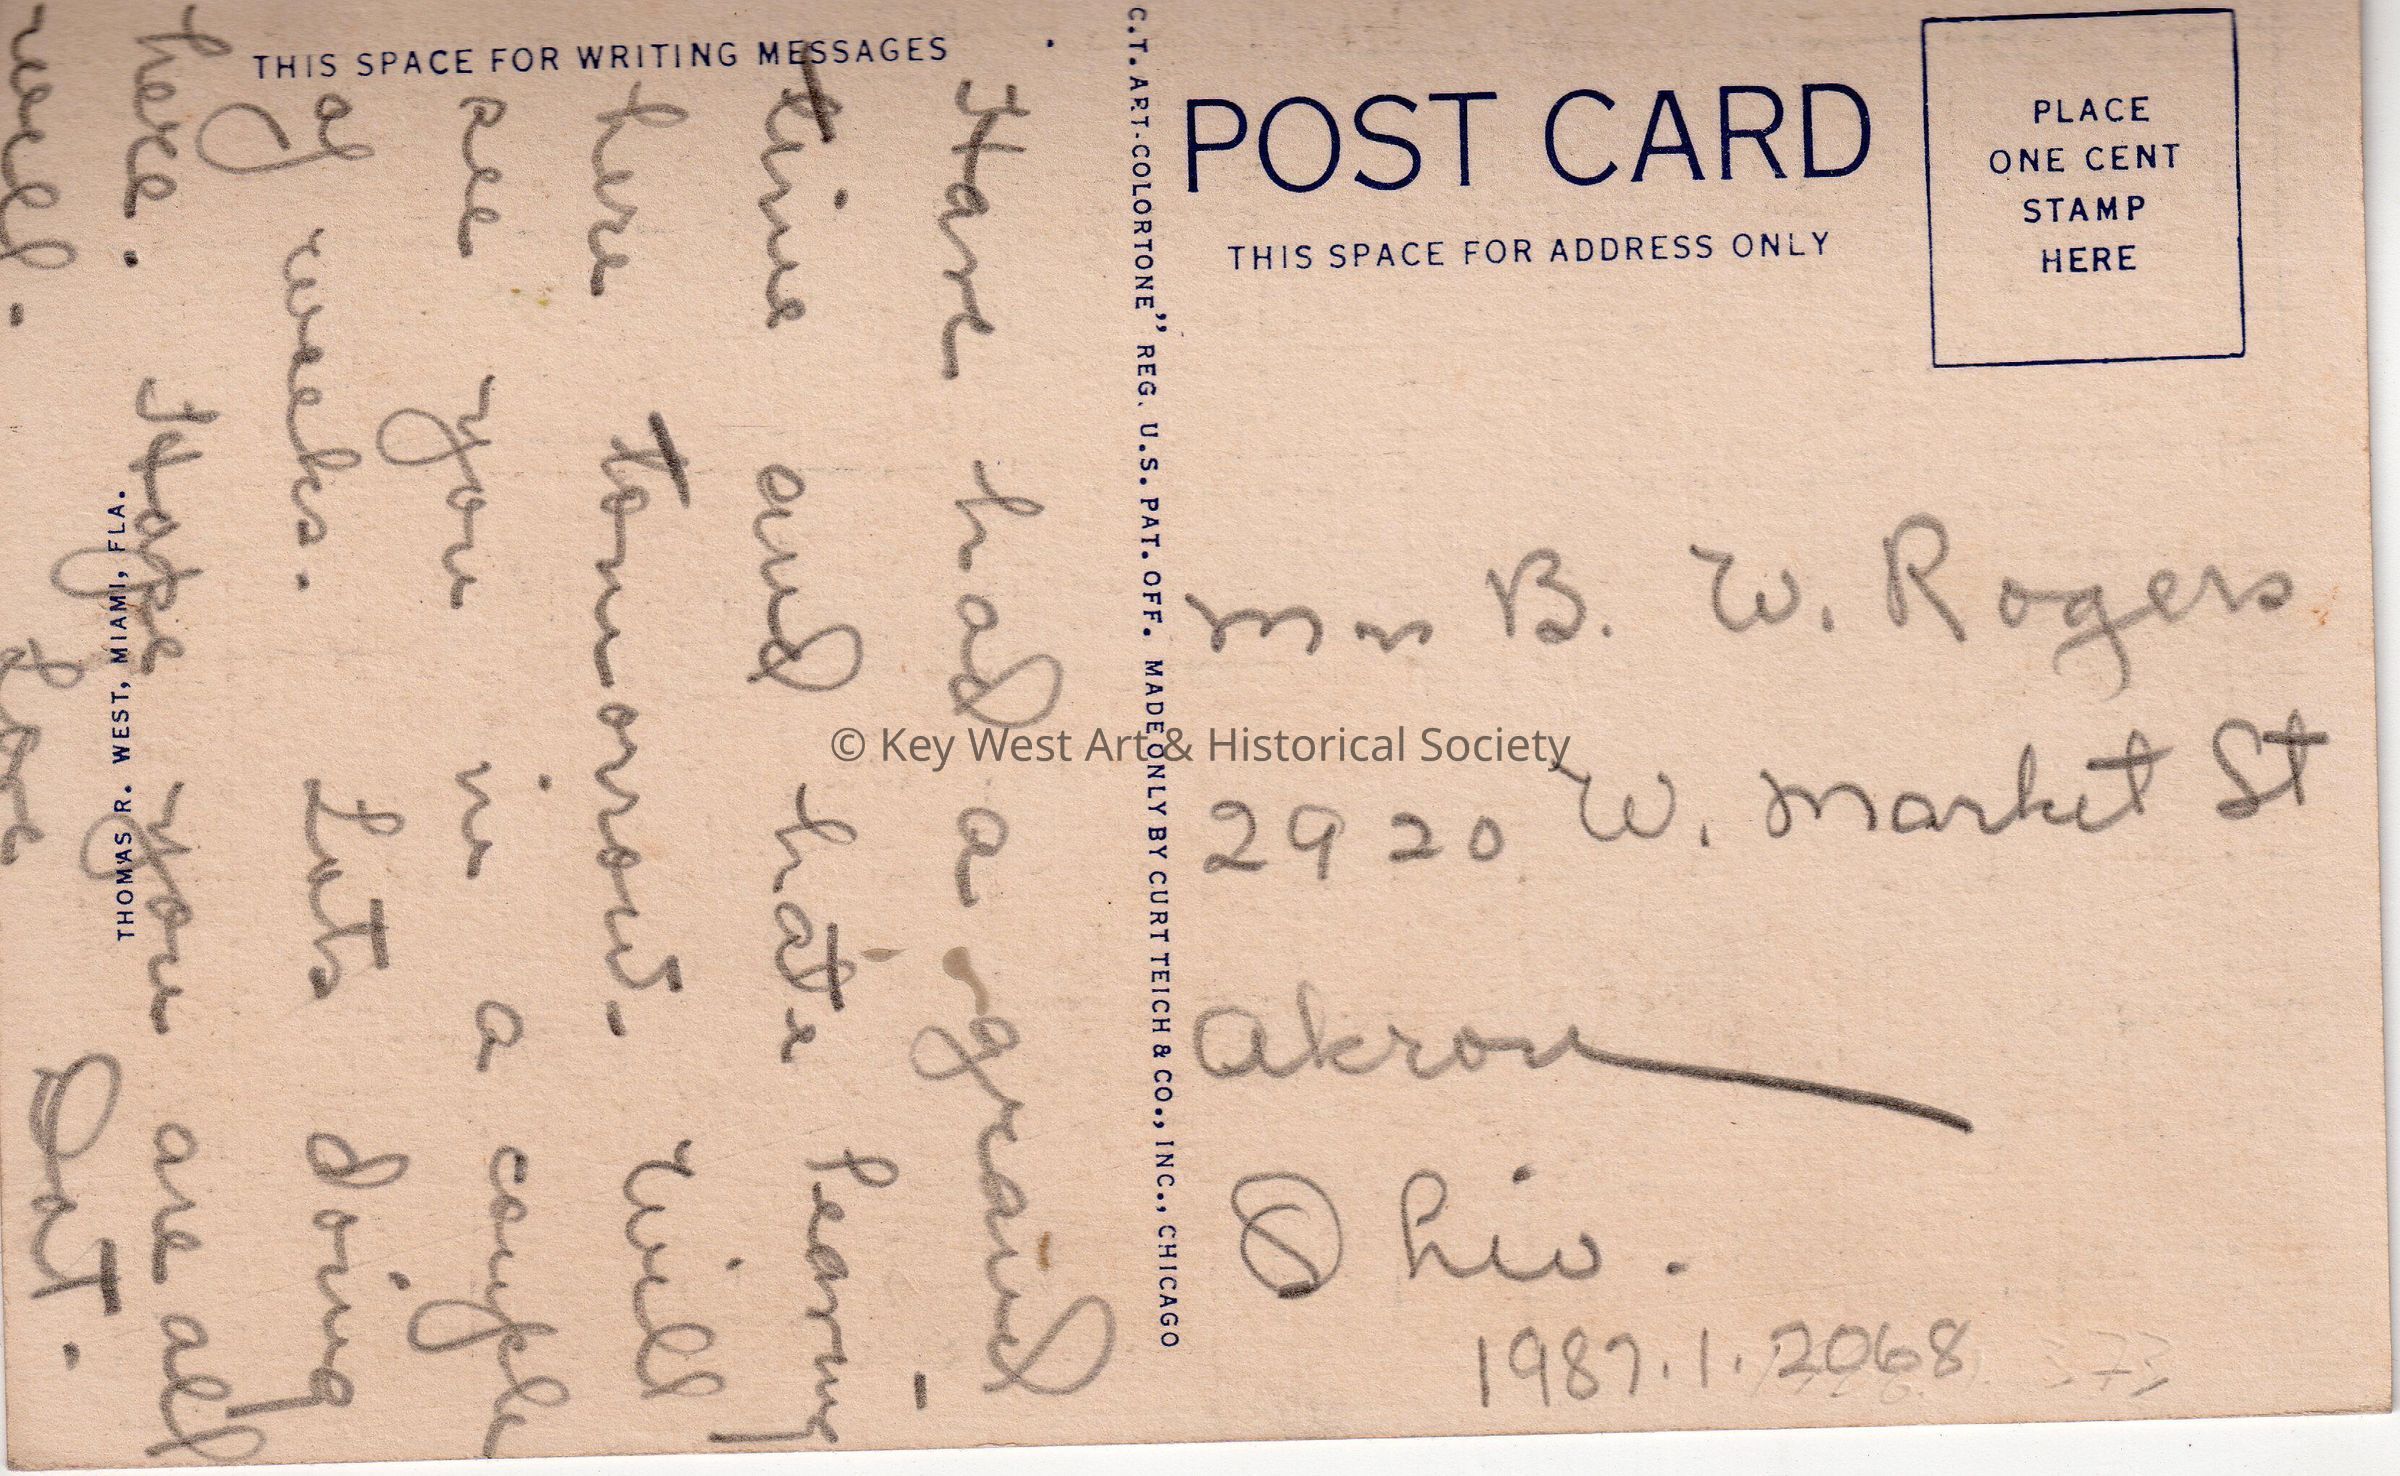 THIS SPACE FOR WRITING MESSAGES
Have had a grand
time and hate leaving
here tomorrow. Will
see you in a couple
of weeks. Lots doing
here. Hope you are all
well. Love Dot.
THOMAS R. WEST, MIAMI, FLA.
C.T. ART-COLORTONE" REG. U.S. PAT. OFF. MADE ONLY BY CURT TEICH & CO., INC., CHICAGO
POST CARD
THIS SPACE FOR ADDRESS ONLY
PLACE
ONE CENT
STAMP
HERE
Mrs B. W. Rogers
2920 W. Market St
Akron
Ohio.
1987.1.2068
© Key West Art & Historical Society